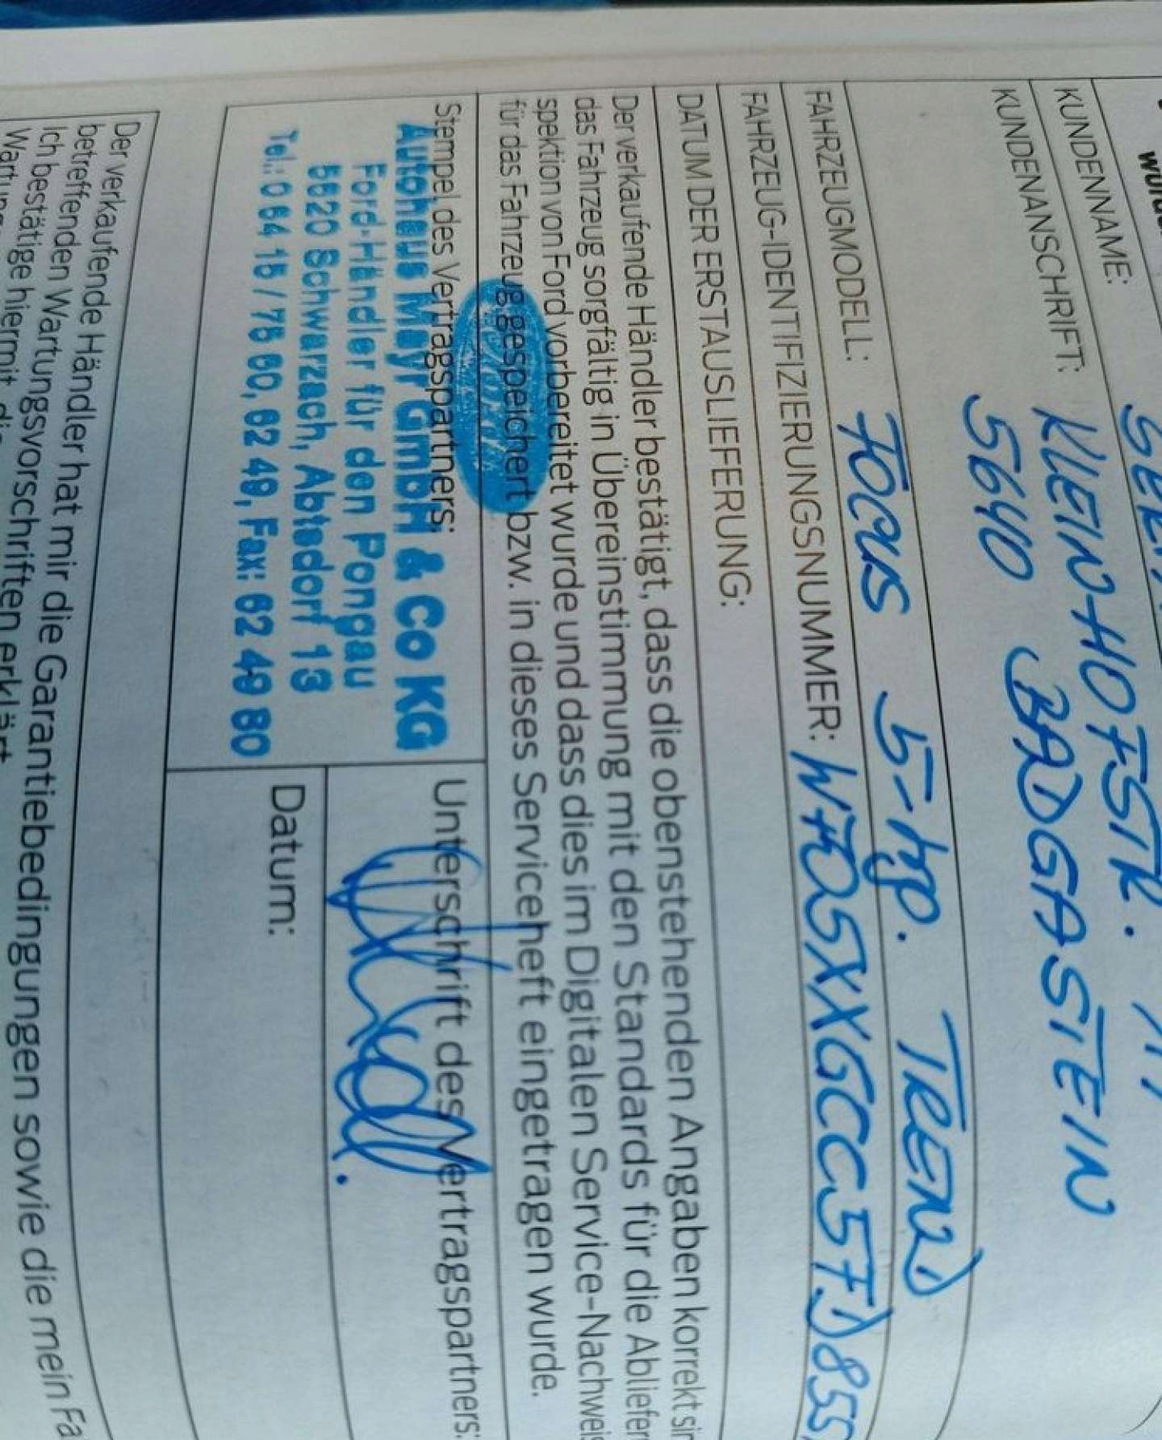 KUNDENNAME:
KUNDENANSCHRIFT: KLEINHOFSTR.
5640 BADGASTEIN
FAHRZEUGMODELL: FOCUS 5-hp. TREND
FAHRZEUG-IDENTIFIZIERUNGSNUMMER: WF05XXGCC5FD855
DATUM DER ERSTAUSLIEFERUNG:
Der verkaufende Händler bestätigt, dass die obenstehenden Angaben korrekt sin
das Fahrzeug sorgfältig in Übereinstimmung mit den Standards für die Abliefer
spektion von Ford vorbereitet wurde und dass dies im Digitalen Service-Nachweis
für das Fahrzeug gespeichert bzw. in dieses Serviceheft eingetragen wurde.
Stempel des Vertragspartners:
Autohaus Mayr GmbH & Co KG
Ford-Händler für den Pongau
5620 Schwarzach, Abtsdorf 13
Tel.: 0 64 15 / 75 60, 62 49, Fax: 62 49 80
Unterschrift des Vertragspartners:
Datum:
Der verkaufende Händler hat mir die Garantiebedingungen sowie die mein Fa
betreffenden Wartungsvorschriften erklärt.
Ich bestätige hiermit